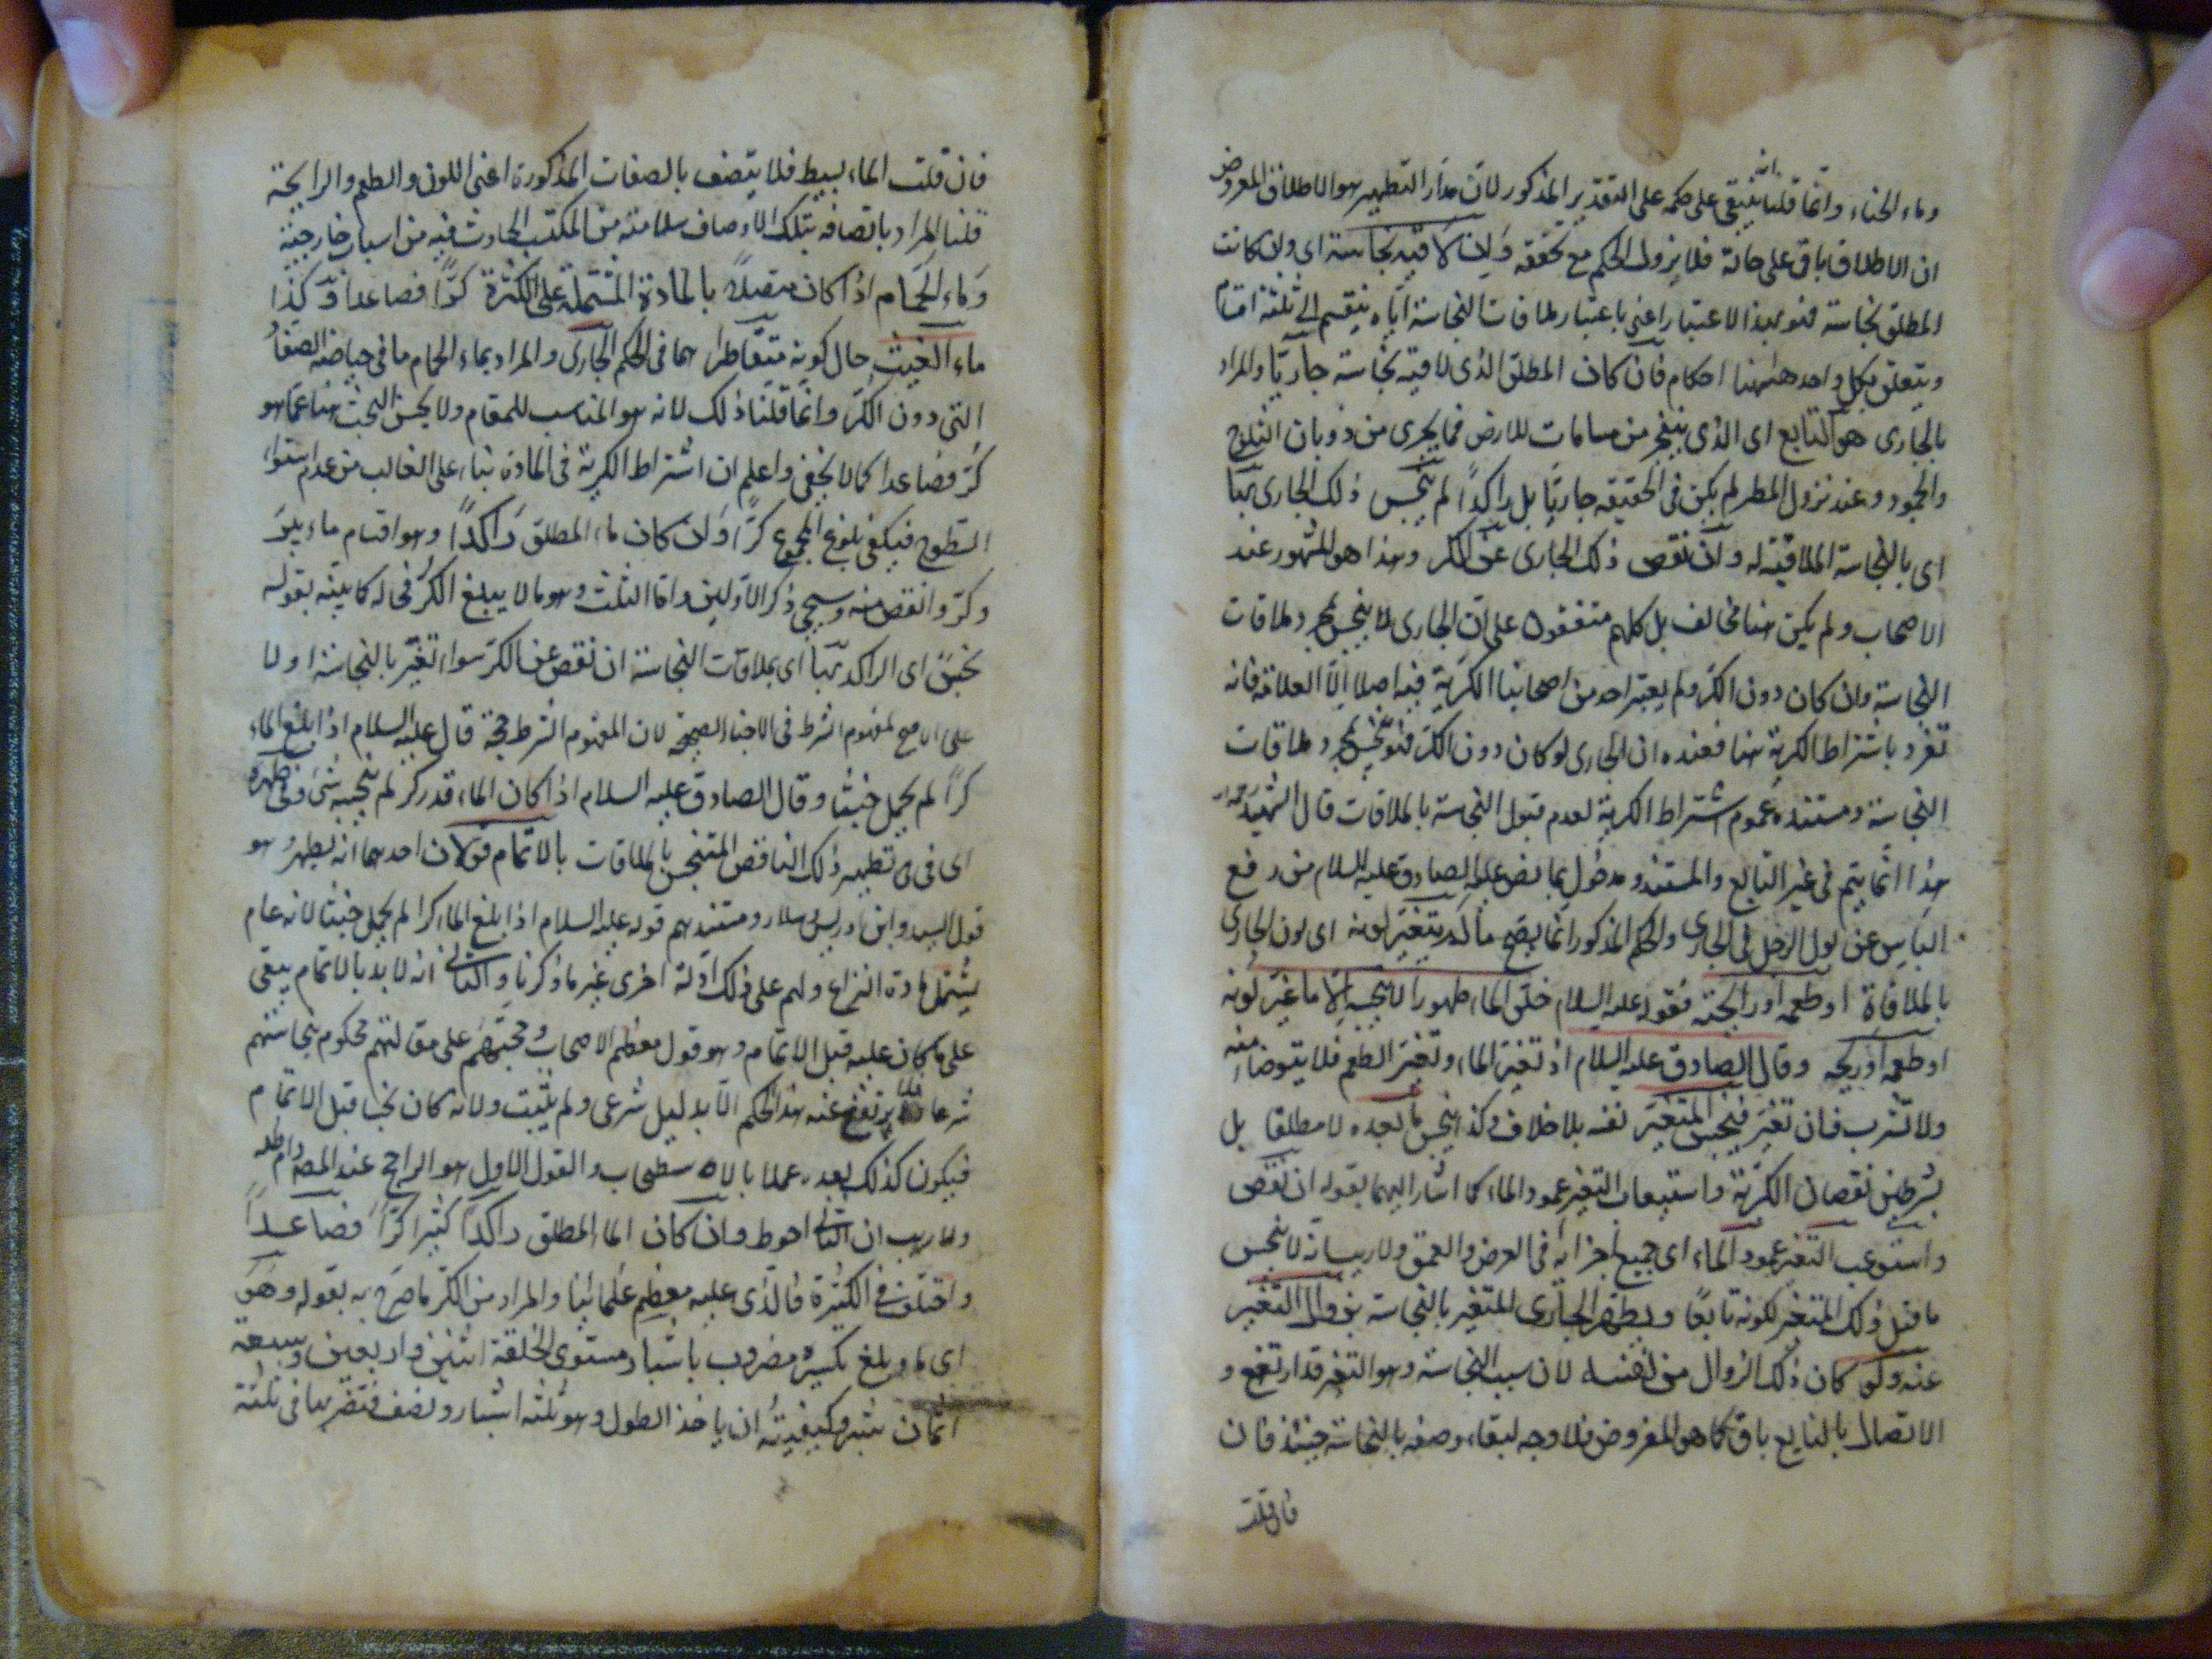 وماء الحناء وانما قلنا انه يبقى على حكمه على التقدير المذكور لان مدار التطهير هو الاطلاق المعروض
ان الاطلاق باق على حاله فلا يزول الحكم مع تحققه وان لاقته نجاسة اى وان كانت
المطلق نجاسة فهو بهذا الاعتبار اعنى باعتبار ملاقات النجاسة اياه ينقسم الى ثلثة اقسام
ويتعلق بكل واحد ههنا احكام فان كان المطلق الذى لاقته نجاسة جاريا والمراد
بالجارى هو النابع اى الذى ينفجر من مسامات للارض فما يجرى من ذوبان الثلوج
والجمود وعند نزول المطر لم يكن فى الحقيقه جاريا بل راكدا لم ينجس ذلك الجارى بها
اى بالنجاسة الملاقية له وان نقص ذلك الجارى عن الكر وهذا هو المشهور عند
الاصحاب ولم يكن هنا مخالف بل كلهم متفقون على ان الجارى لا ينجس بمجرد ملاقات
النجاسة وان كان دون الكر ولم يعتبر احد من اصحابنا الكرية فيه اصلا الا العلامة فانه
تفرد باشتراط الكرية هنا فعنده ان الجارى لو كان دون الكر فهو ينجس بمجرد ملاقات
النجاسة ومستنده عموم اشتراط الكرية لعدم قبول النجاسة بالملاقات قال الشهيد
هذا انما يتم فى غير النابع والمستند مدخول بما نص عليه الصادق عليه السلام من رفع
الباس عن بول الرجل فى الجارى والحكم المذكور انما يصح ما لم يتغير لونه اى لون الجارى
بالملاقاة او طعمه او رايحته لقوله عليه السلام خلق الماء طهورا لا ينجسه الا ما غير لونه
او طعمه او ريحه وقال الصادق عليه السلام اذ تغير الماء وتغير الطعم فلا يتوضا منه
ولا تشرب فان تغير فينجس المتغير نفسه بلا خلاف وكذا ينجس ما بعده لا مطلقا بل
بشرطين نقصان الكرية واستيعاب التغير عمود الماء كما اشار اليهما بقوله ان نقص
واستوعب التغير عمود الماء اى جميع اجزائه فى العرض والعمق ولا ريب انه لا ينجس
ما قبل ذلك المتغير لكونه نابعا ويطهر الجارى المتغير بالنجاسة بزوال التغير
عنه ولو كان ذلك الزوال من نفسه لان سبب النجاسة وهو التغير قد ارتفع و
الاتصال بالنابع باق كما هو المفروض فلا وجه لبقاء وصفه بالنجاسة حينئذ فان
فان قلت
فان قلت الماء بسيط فلا يتصف بالصفات المذكورة اعنى اللون والطعم والرايحة
قلنا المراد باتصافه بتلك الاوصاف سلامته من المكتسب الحادث فيه من اسباب خارجية
وماء الحمام اذا كان متصلا بالمادة المشتملة على الكثرة كرا فصاعدا وكذا
ماء الغيث حال كونه متقاطرا هما فى الحكم الجارى والمراد بماء الحمام ما فى حياضه الصغار
التى دون الكر وانما قلنا ذلك لانه هو المناسب للمقام ولا يحسن البحث هنا عما هو
كر فصاعدا كما لا يخفى واعلم ان اشتراط الكرية فى المادة بناء على الغالب من عدم استواء
السطوح فيكفى بلوغ المجموع كرا وان كان ماء المطلق راكدا وهو اقسام ماء بئر
وكر وانقص منه وسيجى ذكر الاولين واما الثلث وهو ما لا يبلغ الكر فى له كما بينه بقوله
نجس اى الراكد بها اى بملاقات النجاسة ان نقص عن الكر سواء تغير بالنجاسة او لا
على الاصح لمفهوم الشرط فى الاخبار الصحيحة لان المفهوم الشرط حجة قال عليه السلام اذا بلغ الماء
كرا لم يحمل خبثا وقال الصادق عليه السلام اذا كان الماء قدر كر لم ينجسه شئ وفى طهره
اى فى تطهير ذلك الناقص المتنجس بالملاقات بالاتمام قولان احدهما انه يطهر وهو
قول السيد وابن ادريس وسلار ومستندهم قوله عليه السلام اذا بلغ الماء كرا لم يحمل خبثا لانه عام
يشتمل مادة النزاع ولهم على ذلك ادلة اخرى غير ما ذكرنا والثانى انه لا بد بالاتمام يبقى
على ما كان عليه قبل الاتمام وهو قول معظم الاصحاب وحجتهم على مقالتهم محكوم بنجاستهم
شرعا فلا يرتفع عنه هذا الحكم الا بدليل شرعى ولم يثبت ولانه كان نجسا قبل الاتمام
فيكون كذلك بعده عملا بالاستصحاب والقول الاول هو الراجح عند المصـ دام ظله
ولا ريب ان الثانى احوط وان كان الماء المطلق راكدا كثيرا كرا فصاعدا
واختلف فى الكثرة فالذى عليه معظم علمائنا والمراد من الكر ما صرح به بقوله وهو
اى ما بلغ تكسيره مضروب باشبار مستوى الخلقة اثنين واربعين وسبعة
اثمان شبر وكيفيته ان ياخذ الطول وهو ثلثه اشبار ونصف فتضربها فى ثلثة